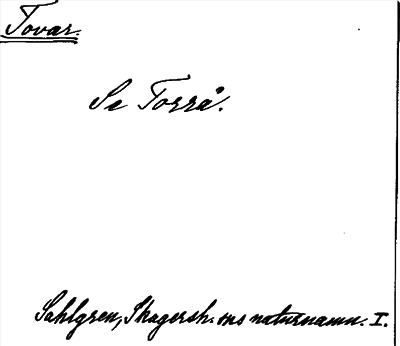 Tovar.
Se Torrå.
Sahlgren, Skagersh:sns naturnamn. I.